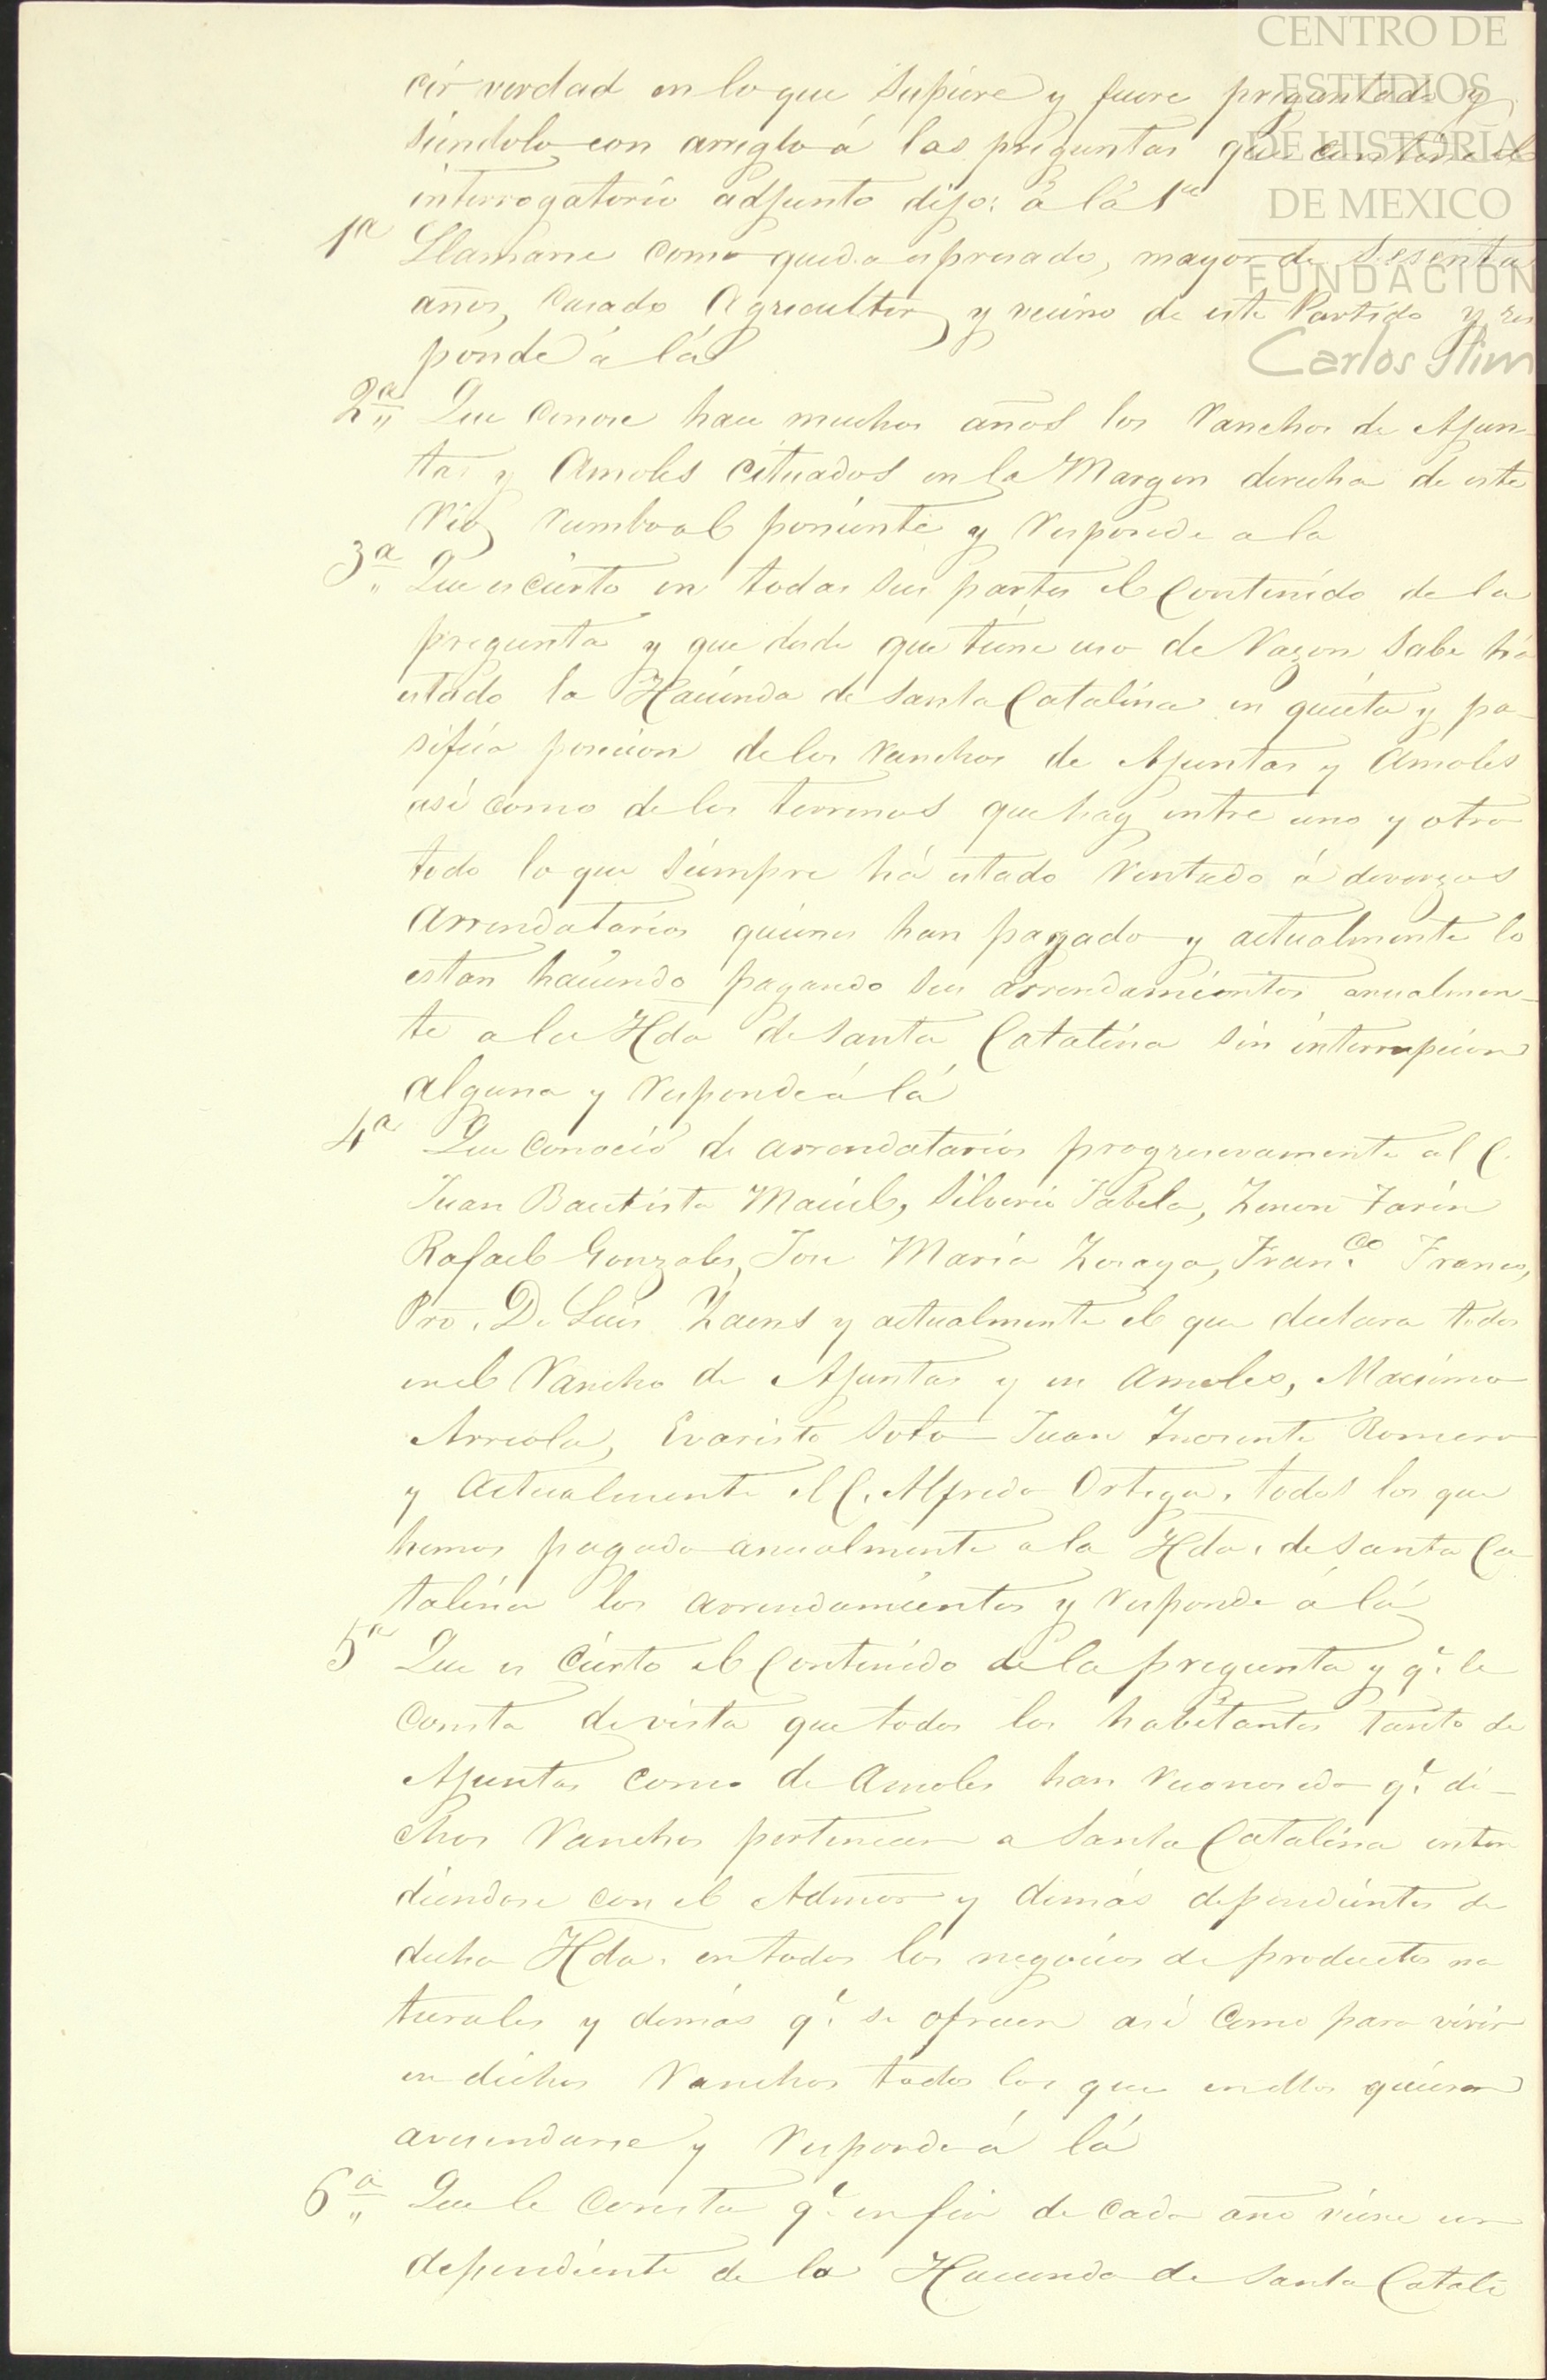 CENTRO DE
ESTUDIOS
DE HISTORIA
DE MEXICO
FUNDACIÓN
Carlos Slim
cir verdad en lo que supiere y fuere preguntado y
siendolo con arreglo á las preguntas que contiene el
interrogatorio adjunto dijo: á lá 1ª
1ª Llamarse como queda espresado, mayor de sesenta
años, casado Agricultor y vecino de este Partido y res
ponde á lá
2ª Que conose hace muchos años los Ranchos de Ajun-
tas y Amoles cituados en la Margen derecha de este
Rio rumbo al poniente y Responde a la
3ª Que es cierto en todas sus partes el Contenido de la
pregunta y que desde que tiene uso de Razon sabe há
estado la Hacienda de Santa Catalina en quieta y pa-
sifica posecion de los Ranchos de Ajuntas y Amoles
así como de los terrenos que hay entre uno y otro
todo lo que siempre há estado Rentado á diverzos
Arrendatarios quienes han pagado y actualmente lo
estan haciendo pagando sus arrendamientos anualmen-
te a la Hda de Santa Catalina sin interrupcion
alguna y Responde á lá
4ª Que conoció de arrendatarios progresivamente al C.
Juan Bautista Maciel, Silverio Tabela, Zenon Farin
Rafael Gonzales, Jose María Zesaya, Fran.co Franco,
Pro. D. Luis Zaens y actualmente el que declara todos
en el Rancho de Ajuntas y en Amoles, Macsimo
Arreola, Evaristo Soto Juan Inosente Romero
y Actualmente el C. Alfredo Ortega, todos los que
hemos pagado anualmente a la Hda. de Santa Ca
talina los arrendamientos y Responde á lá
5ª Que es cierto el Contenido de la pregunta y q.e le
consta de vista que todos los habitantes tanto de
Ajuntas como de Amoles han Reconosido q.e di-
chos Ranchos pertenecen a Santa Catalina enten
diendose con el Admor y demás dependientes de
dicha Hda. en todos los negocios de productos na
turales y demás q.e se ofrecen así como para vivir
en dichos Ranchos todos los que en ellos quieren
avecindarse y Responde á lá
6ª Que le Consta q.e en fin de cada año viene un
dependiente de la Hacienda de Santa Catali